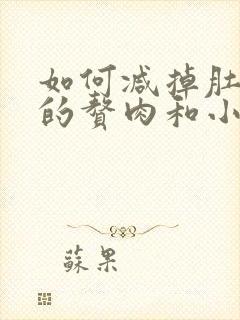 如何减掉肚
的赘肉和小
蘇果